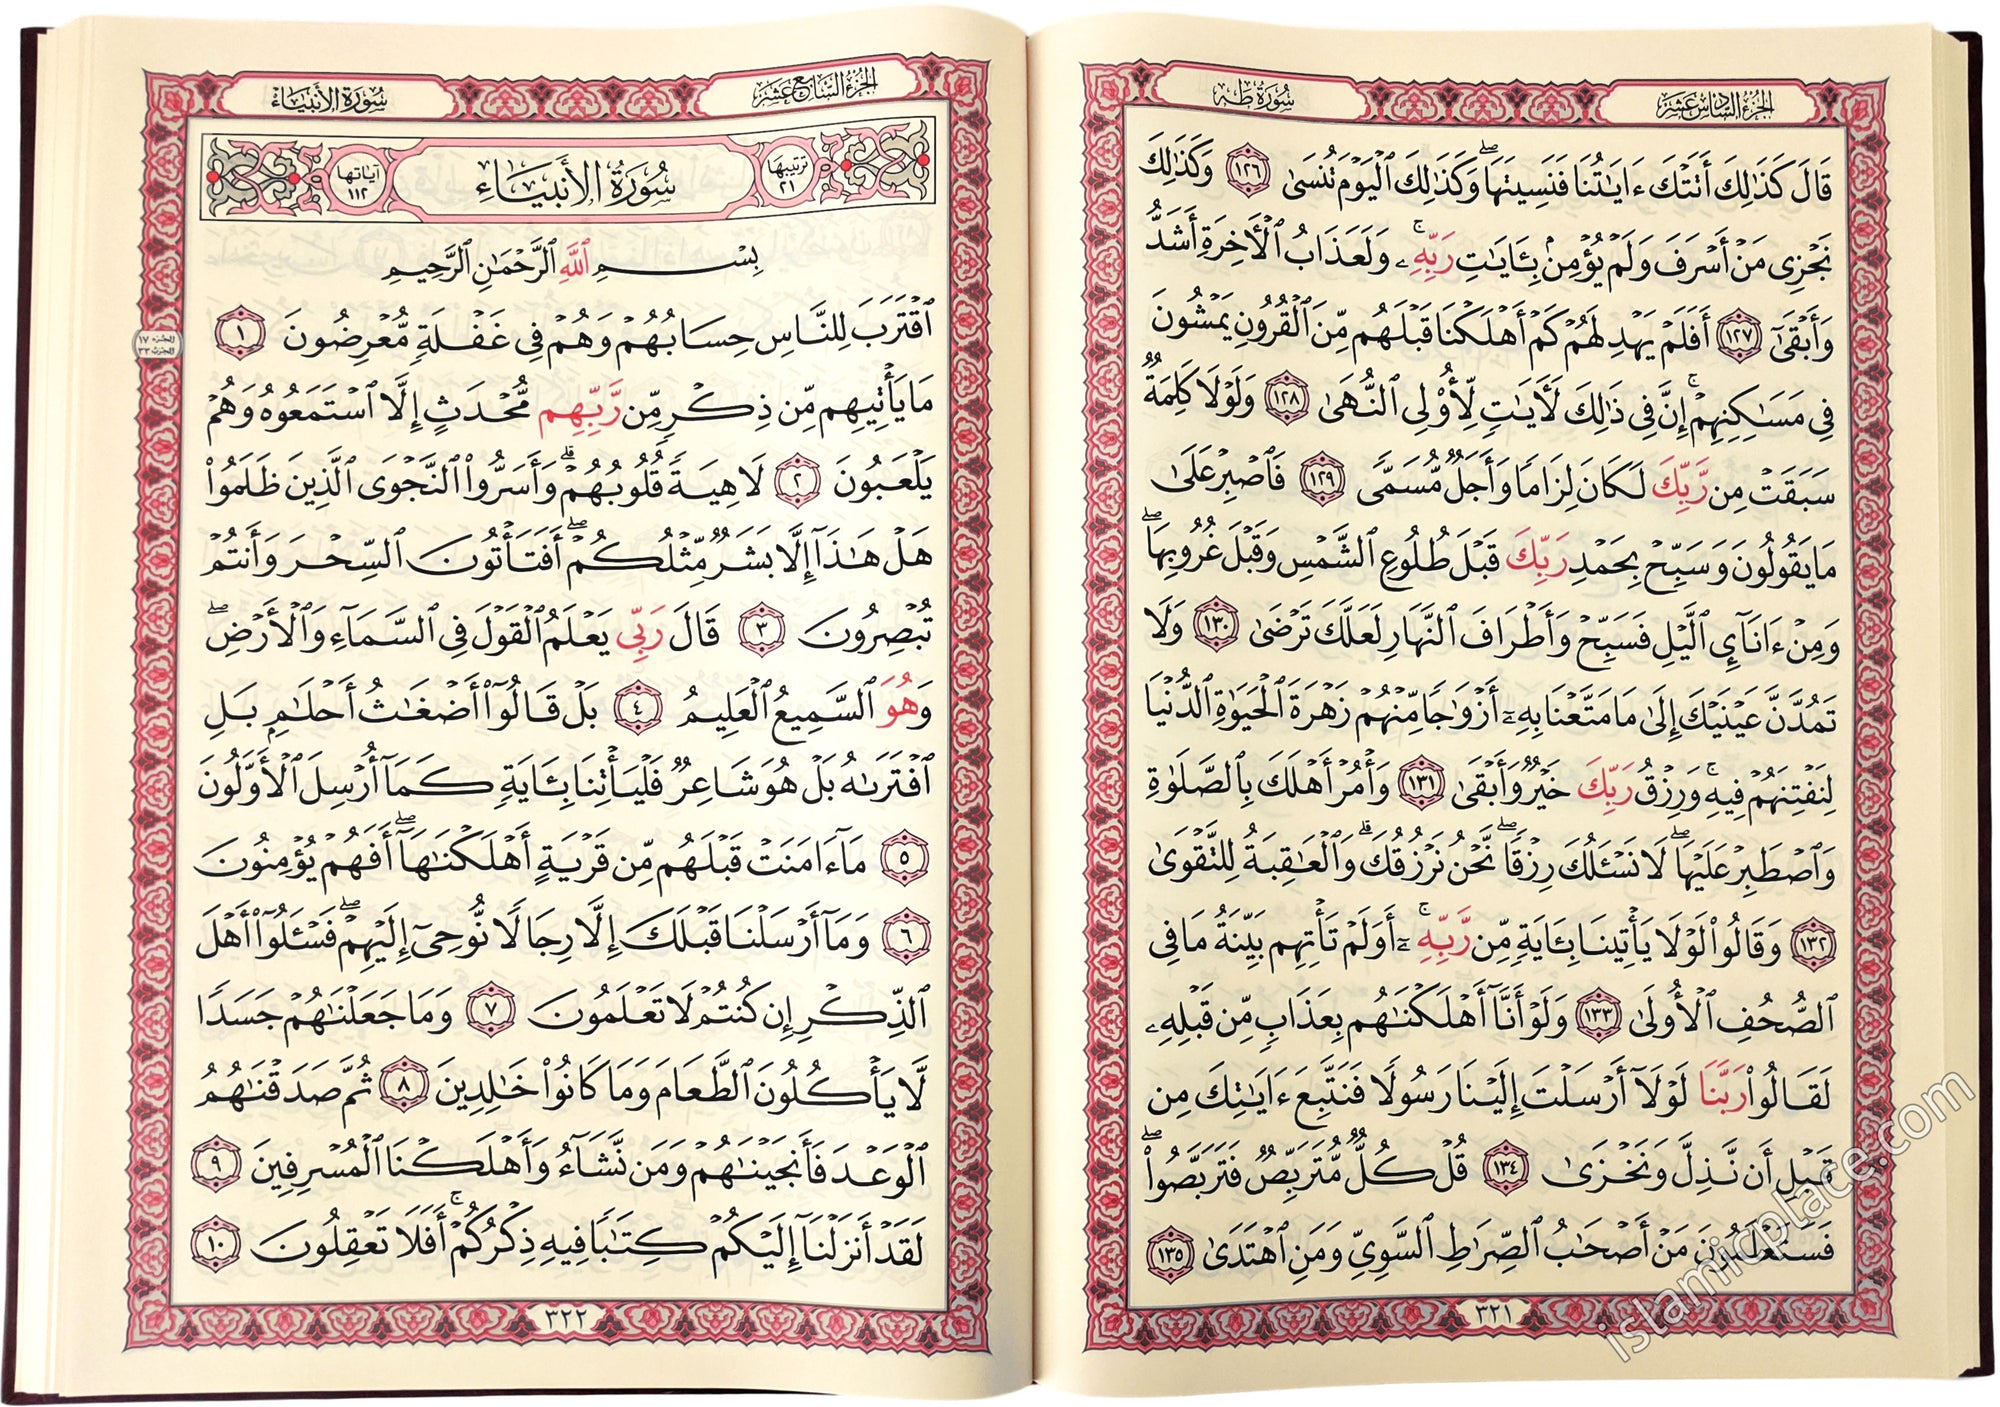 الجزء السادس عشر
سورة طه
قَالَ كَذَٰلِكَ أَتَتْكَ ءَايَٰتُنَا فَنَسِيتَهَا ۖ وَكَذَٰلِكَ ٱلْيَوْمَ تُنسَىٰ ١٢٦ وَكَذَٰلِكَ
نَجْزِى مَنْ أَسْرَفَ وَلَمْ يُؤْمِنۢ بِـَٔايَٰتِ رَبِّهِۦ ۚ وَلَعَذَابُ ٱلْـَٔاخِرَةِ أَشَدُّ
وَأَبْقَىٰٓ ١٢٧ أَفَلَمْ يَهْدِ لَهُمْ كَمْ أَهْلَكْنَا قَبْلَهُم مِّنَ ٱلْقُرُونِ يَمْشُونَ
فِى مَسَٰكِنِهِمْ ۗ إِنَّ فِى ذَٰلِكَ لَـَٔايَٰتٍ لِّأُو۟لِى ٱلنُّهَىٰ ١٢٨ وَلَوْلَا كَلِمَةٌ
سَبَقَتْ مِن رَّبِّكَ لَكَانَ لِزَامًا وَأَجَلٌ مُّسَمًّى ١٢٩ فَٱصْبِرْ عَلَىٰ
مَا يَقُولُونَ وَسَبِّحْ بِحَمْدِ رَبِّكَ قَبْلَ طُلُوعِ ٱلشَّمْسِ وَقَبْلَ غُرُوبِهَا ۖ
وَمِنْ ءَانَآئِ ٱلَّيْلِ فَسَبِّحْ وَأَطْرَافَ ٱلنَّهَارِ لَعَلَّكَ تَرْضَىٰ ١٣٠ وَلَا
تَمُدَّنَّ عَيْنَيْكَ إِلَىٰ مَا مَتَّعْنَا بِهِۦٓ أَزْوَٰجًا مِّنْهُمْ زَهْرَةَ ٱلْحَيَوٰةِ ٱلدُّنْيَا
لِنَفْتِنَهُمْ فِيهِ ۚ وَرِزْقُ رَبِّكَ خَيْرٌ وَأَبْقَىٰ ١٣١ وَأْمُرْ أَهْلَكَ بِٱلصَّلَوٰةِ
وَٱصْطَبِرْ عَلَيْهَا ۖ لَا نَسْـَٔلُكَ رِزْقًا ۖ نَّحْنُ نَرْزُقُكَ ۗ وَٱلْعَٰقِبَةُ لِلتَّقْوَىٰ
١٣٢ وَقَالُوا۟ لَوْلَا يَأْتِينَا بِـَٔايَةٍ مِّن رَّبِّهِۦٓ ۚ أَوَلَمْ تَأْتِهِم بَيِّنَةُ مَا فِى
ٱلصُّحُفِ ٱلْأُولَىٰ ١٣٣ وَلَوْ أَنَّآ أَهْلَكْنَٰهُم بِعَذَابٍ مِّن قَبْلِهِۦ
لَقَالُوا۟ رَبَّنَا لَوْلَآ أَرْسَلْتَ إِلَيْنَا رَسُولًا فَنَتَّبِعَ ءَايَٰتِكَ مِن
قَبْلِ أَن نَّذِلَّ وَنَخْزَىٰ ١٣٤ قُلْ كُلٌّ مُّتَرَبِّصٌ فَتَرَبَّصُوا۟ ۖ
فَسَتَعْلَمُونَ مَنْ أَصْحَٰبُ ٱلصِّرَٰطِ ٱلسَّوِىِّ وَمَنِ ٱهْتَدَىٰ ١٣٥
٣٢١
الجزء السابع عشر
سورة الأنبياء
ترتيبها ٢١
سُورَةُ الأَنبِيَاءِ
آياتها ١١٢
بِسْمِ ٱللَّهِ ٱلرَّحْمَٰنِ ٱلرَّحِيمِ
ٱقْتَرَبَ لِلنَّاسِ حِسَابُهُمْ وَهُمْ فِى غَفْلَةٍ مُّعْرِضُونَ ١
الجزء ١٧
الحزب ٣٣
مَا يَأْتِيهِم مِّن ذِكْرٍ مِّن رَّبِّهِم مُّحْدَثٍ إِلَّا ٱسْتَمَعُوهُ وَهُمْ
يَلْعَبُونَ ٢ لَاهِيَةً قُلُوبُهُمْ ۗ وَأَسَرُّوا۟ ٱلنَّجْوَى ٱلَّذِينَ ظَلَمُوا۟
هَلْ هَٰذَآ إِلَّا بَشَرٌ مِّثْلُكُمْ ۖ أَفَتَأْتُونَ ٱلسِّحْرَ وَأَنتُمْ
تُبْصِرُونَ ٣ قَالَ رَبِّى يَعْلَمُ ٱلْقَوْلَ فِى ٱلسَّمَآءِ وَٱلْأَرْضِ ۖ
وَهُوَ ٱلسَّمِيعُ ٱلْعَلِيمُ ٤ بَلْ قَالُوٓا۟ أَضْغَٰثُ أَحْلَٰمٍۭ بَلِ
ٱفْتَرَىٰهُ بَلْ هُوَ شَاعِرٌ فَلْيَأْتِنَا بِـَٔايَةٍ كَمَآ أُرْسِلَ ٱلْأَوَّلُونَ
٥ مَآ ءَامَنَتْ قَبْلَهُم مِّن قَرْيَةٍ أَهْلَكْنَٰهَآ ۖ أَفَهُمْ يُؤْمِنُونَ
٦ وَمَآ أَرْسَلْنَا قَبْلَكَ إِلَّا رِجَالًا نُّوحِىٓ إِلَيْهِمْ ۖ فَسْـَٔلُوٓا۟ أَهْلَ
ٱلذِّكْرِ إِن كُنتُمْ لَا تَعْلَمُونَ ٧ وَمَا جَعَلْنَٰهُمْ جَسَدًا
لَّا يَأْكُلُونَ ٱلطَّعَامَ وَمَا كَانُوا۟ خَٰلِدِينَ ٨ ثُمَّ صَدَقْنَٰهُمُ
ٱلْوَعْدَ فَأَنجَيْنَٰهُمْ وَمَن نَّشَآءُ وَأَهْلَكْنَا ٱلْمُسْرِفِينَ ٩
لَقَدْ أَنزَلْنَآ إِلَيْكُمْ كِتَٰبًا فِيهِ ذِكْرُكُمْ ۖ أَفَلَا تَعْقِلُونَ ١٠
٣٢٢
islamicplace.com